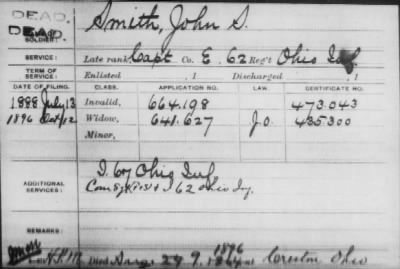 DEAD.
DEAD.
Smith, John S.
SOLDIER:
SERVICE: Late rank, Capt Co. E, 62 Reg't Ohio Inf.
TERM OF SERVICE: Enlisted , 1 Discharged , 1
DATE OF FILING. CLASS. APPLICATION NO. LAW. CERTIFICATE NO.
1888 July 13 Invalid, 664.198 473.043
1896 Oct 12 Widow, 641.627 O. 435300
Minor,
ADDITIONAL SERVICES: I. 67 Ohio Inf
62 Ohio Inf.
REMARKS:
Died Aug. 29 1896 at Creston Ohio